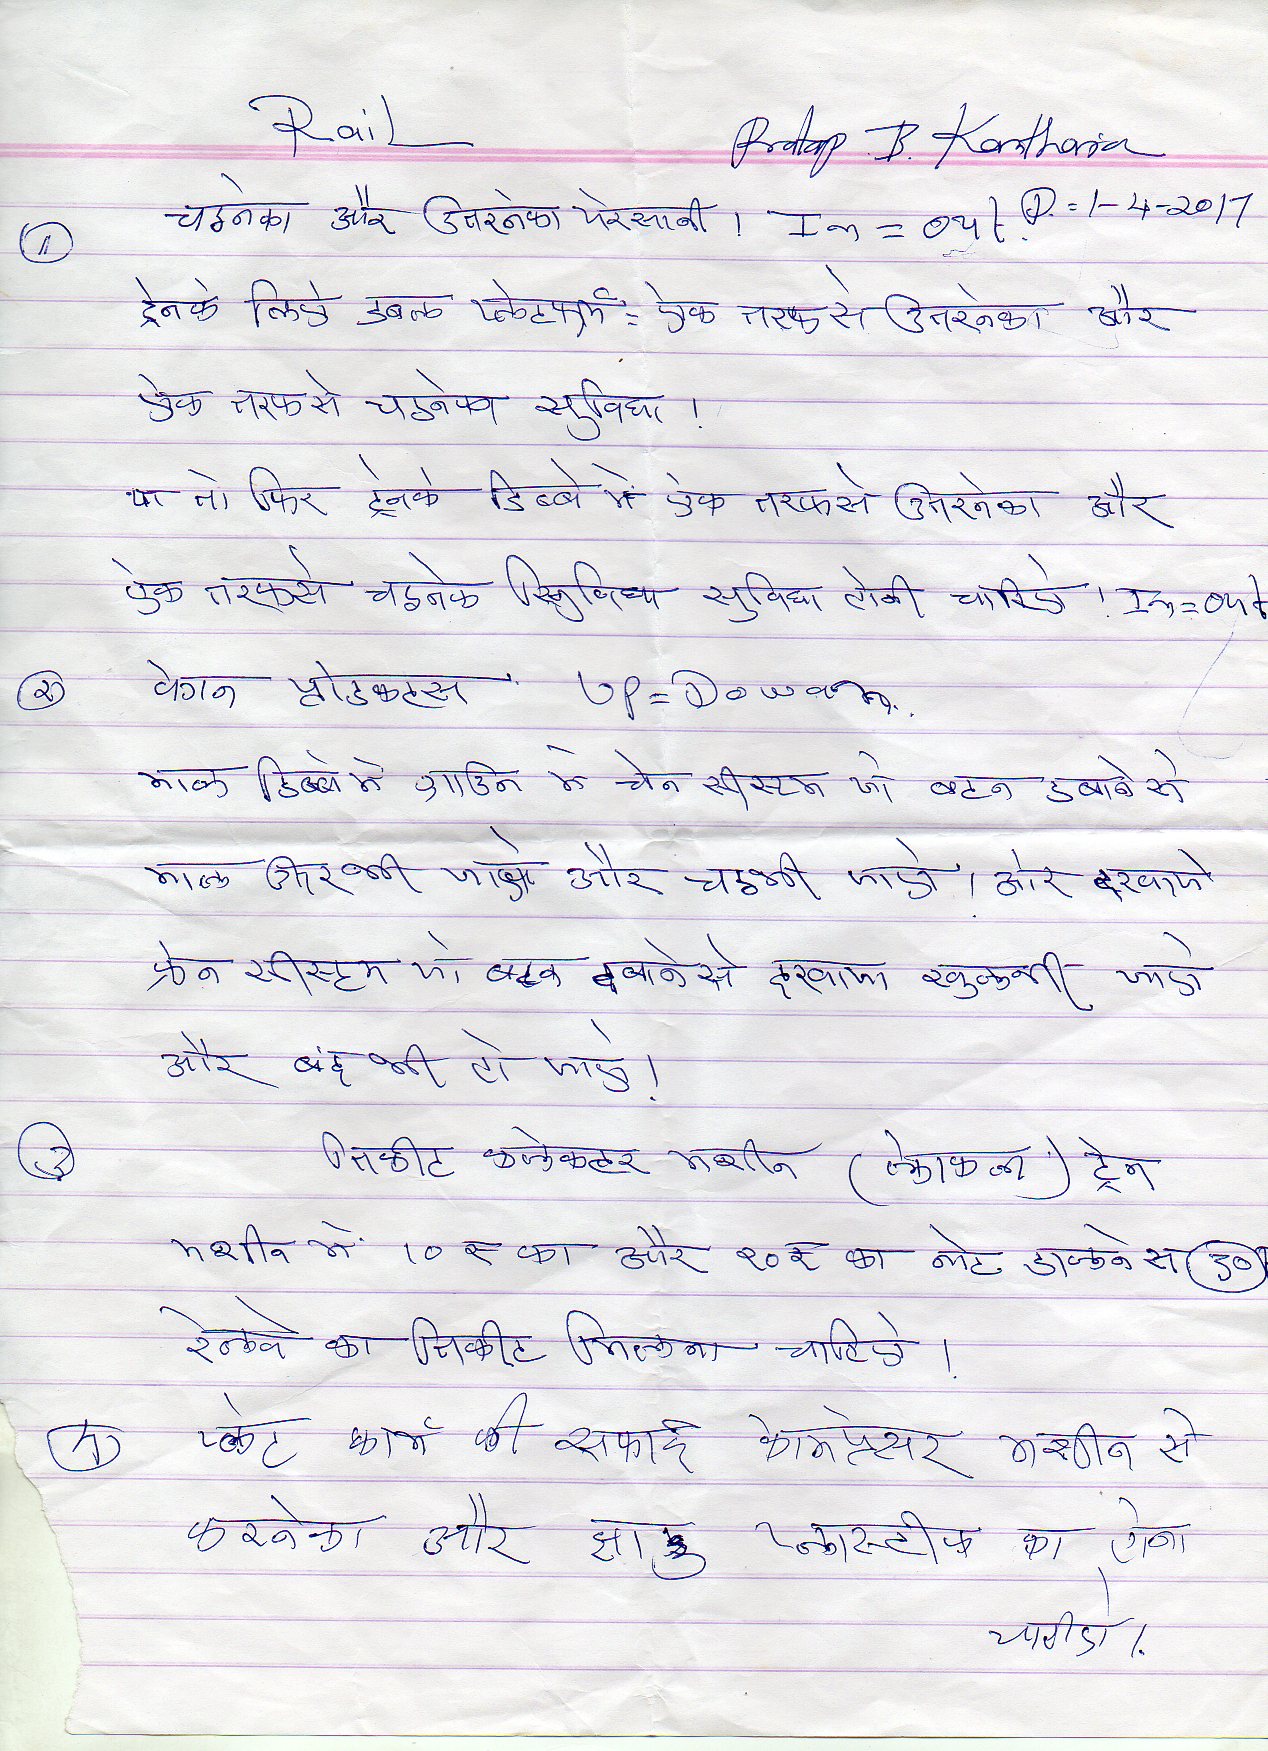 Rail
Pratap B. Kantharia
चड़नेका और उतरनेका परेसानी । In = out. D. = 1-4-2017
1 ट्रेनके लिऐ डबल प्लेटफार्म = ऐक तरफसे उतरनेका और
ऐक तरफसे चड़नेका सुविधा ।
या तो फिर ट्रेनके डिब्बे में ऐक तरफसे उतरनेका और
ऐक तरफसे चड़नेका सुविधा होनी चाहिऐ । In = out
२ वेगन प्रोडकटस Up = Dowan.
माल डिब्बे में में चेन सीस्टम जो बटन दबाने से
माल उतरभी जाऐ और चड़भी जाऐ । और दरवाजे
क्रेन सीस्टम जो बटन दबानेसे दरवाजा खुलभी जाऐ
और बंद भी हो जाऐ ।
3 तिकीट कलेकटर मशीन (लोकल) ट्रेन
मशीन में 10 रु का और २० रु का नोट डालने से
रेलवे का तिकीट मिलना चाहिऐ ।
4 प्लेट फार्म की सफाई कोमप्रेसर मशीन से
करनेका और झाडु प्लास्टीक का होना
चाहीऐ ।